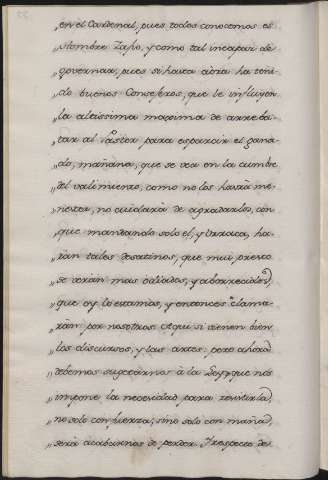 „ en el Cardenal, pues todos conocemos es
„ Hombre Zafio, y como tal incapaz de
„ governar, pues si hasta aora ha teni-
„ do buenos Consejeros, que le influyen
„ la altissima maxima de arreba-
„ tar al Pastor para esparcir el gana-
„ do, mañana, que se vea en la cumbre
„ del valimiento, como no los havrà me-
„ nester, no cuidarà de agradarlos, con
„ que mandando solo el, y Urraca, ha-
„ ràn tales desatinos, que mui presto
„ se veràn mas odiados, y aborrecidos,
„ que oy lo estamos, y entonces clama-
„ ràn por nosotros. Aqui si vienen bien
„ los discursos, y las artes; pero ahora
„ debemos sugetarnos à la Ley, que nos
„ impone la necesidad para resistirla,
„ no solo con fuerza, sino solo con maña,
„ serà acabarnos de perder. Respecto de